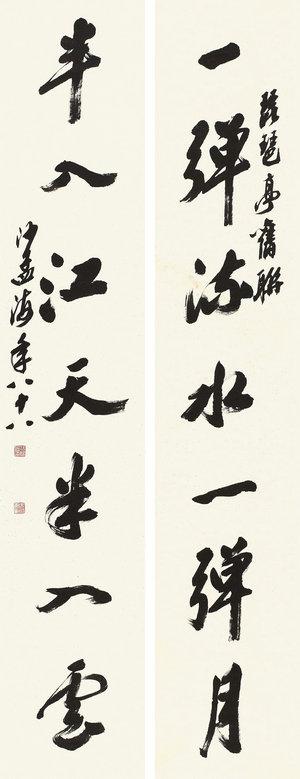 琵琶亭舊聯
一弹流水一弹月
半入江天半入雲
沙孟海年八十八